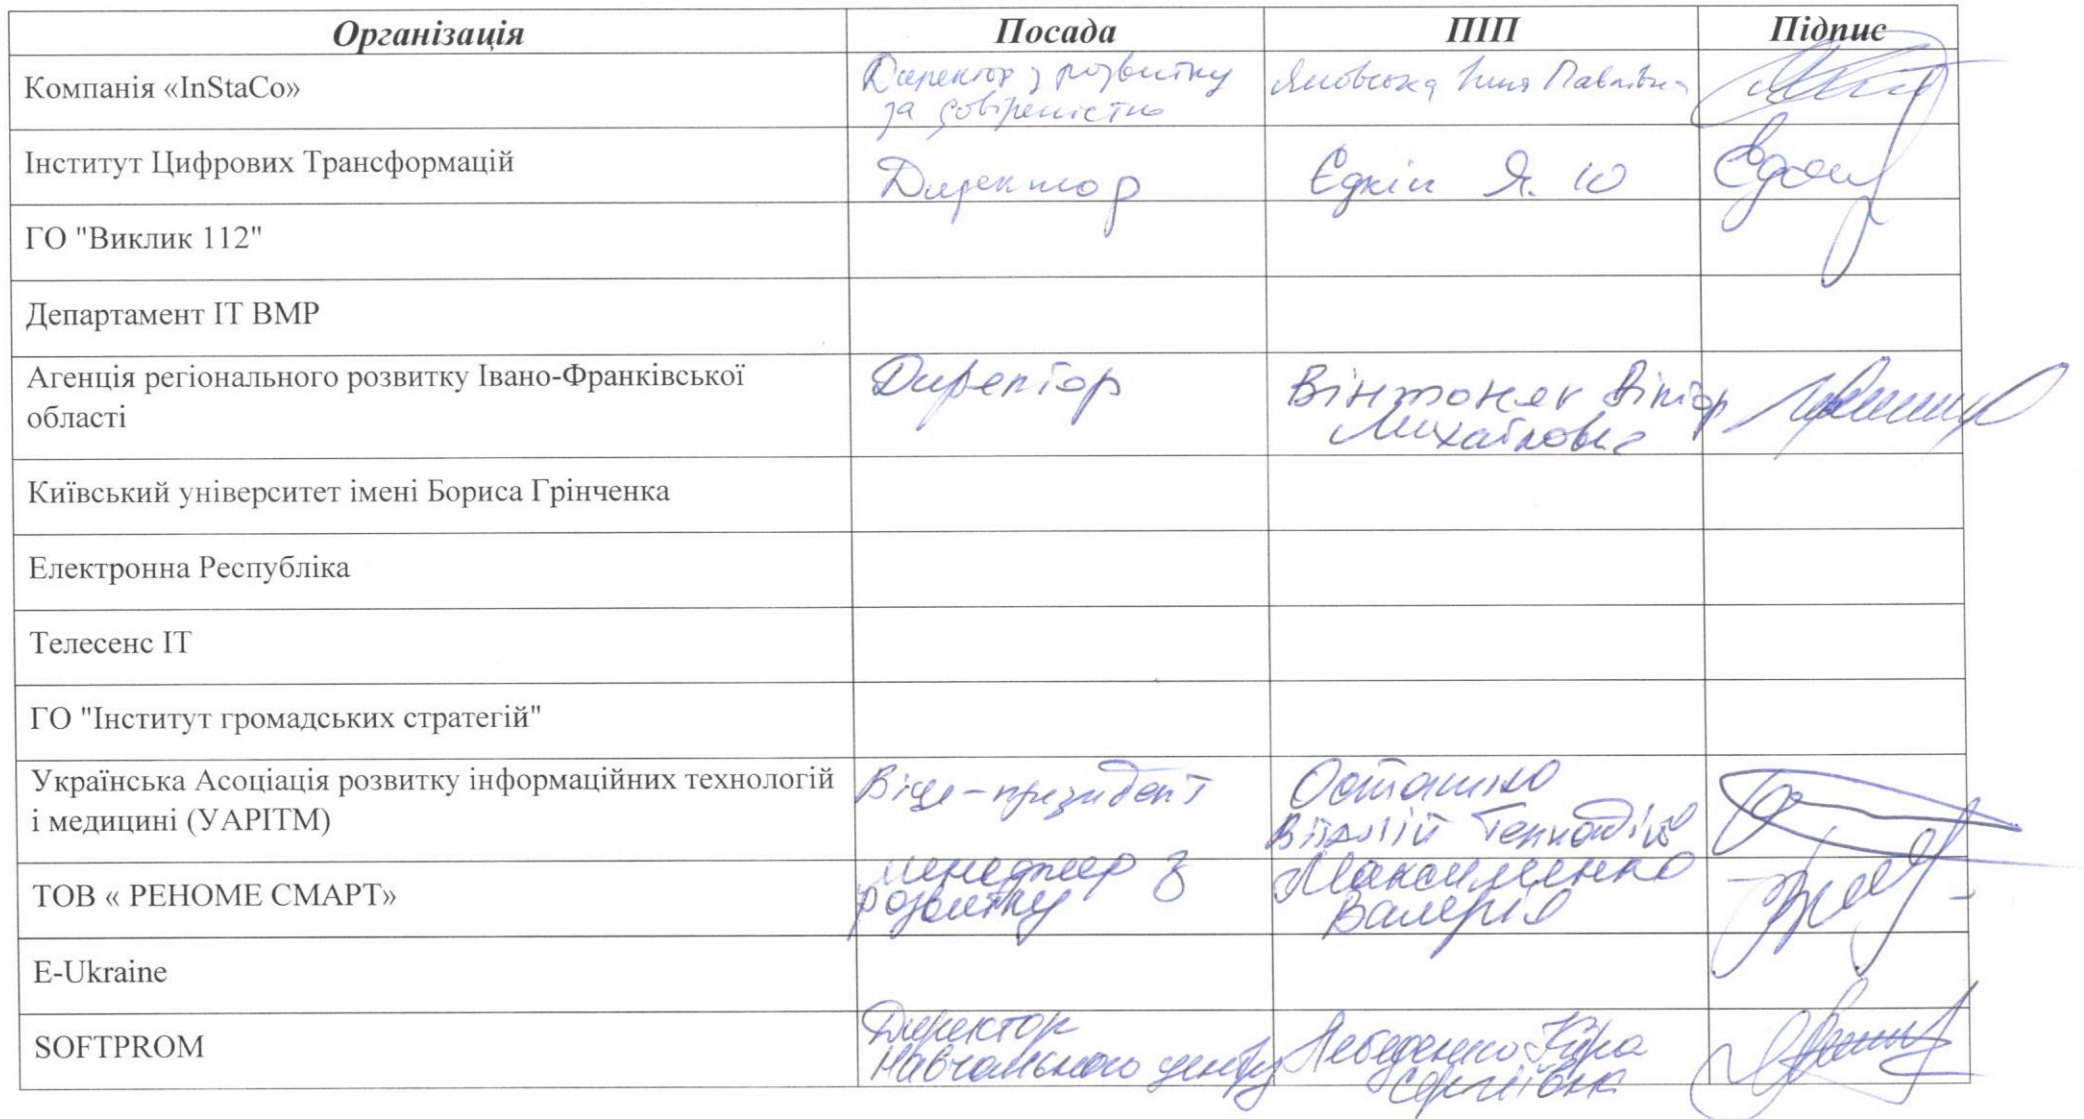 Організація Посада ПІП Підпис
Компанія «InStaCo» Директор з розвитку Яновська Інна Павлівна
за
Інститут Цифрових Трансформацій Директор Єдкін Я. Ю
ГО "Виклик 112"
Департамент ІТ ВМР
Агенція регіонального розвитку Івано-Франківської Директор Вінтоняк Віктор
області Михайлович
Київський університет імені Бориса Грінченка
Електронна Республіка
Телесенс ІТ
ГО "Інститут громадських стратегій"
Українська Асоціація розвитку інформаційних технологій Віце-президент Осташко
і медицині (УАРІТМ) Віталій
ТОВ « РЕНОМЕ СМАРТ» менеджер з Максименко
розвитку Валерія
E-Ukraine
SOFTPROM Директор Лебеденко Кіра
Навчального центру Сергіївна